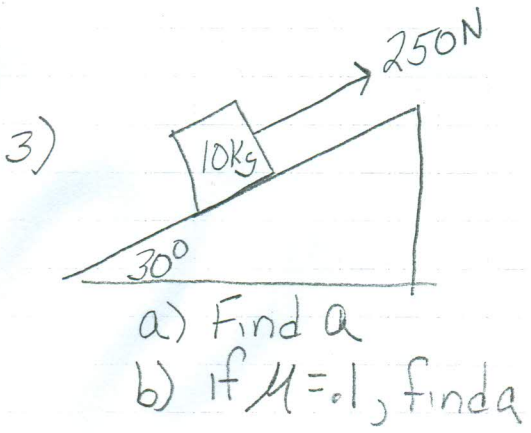 250N
3)
10Kg
30°
a) Find a
b) if μ=.1, find a